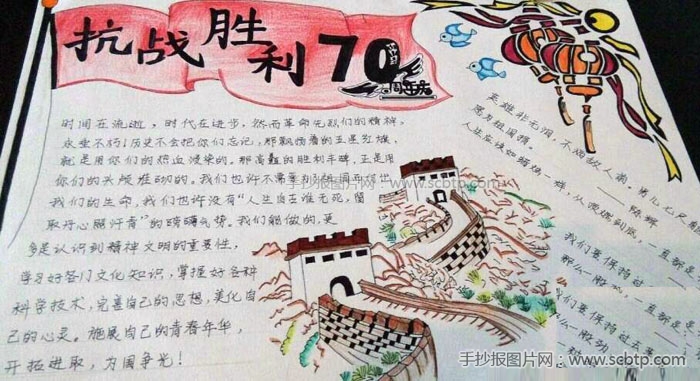 抗战胜利70
周年
时间在流逝，时代在进步，然而革命先烈们的精神
永垂不朽！历史不会把你们忘记，那飘扬着的五星红旗
就是用你们的热血浸染的。那高矗的胜利丰碑，正是用
你们的头颅堆砌的。我们也许不需要
我们的生命，我们也许没有“人生自古谁无死，留
取丹心照汗青”的磅礴气势。我们能做的，更
多是认识到精神文明的重要性，
学习好各门文化知识，掌握好各种
科学技术，完善自己的思想，美化自
己的心灵。施展自己的青春年华，
开拓进取，为国争光！
英雄非无泪，不洒敌人前，男儿七尺
愿为祖国捐。
——陈辉
人生应该如蜡烛一样，从顶燃到底，一直都是
我们要保持过去
那么一股劲
我们要保持过去
那么一股劲
手抄报图片网：www.scbtp.com
手抄报图片网：www.scbtp.com